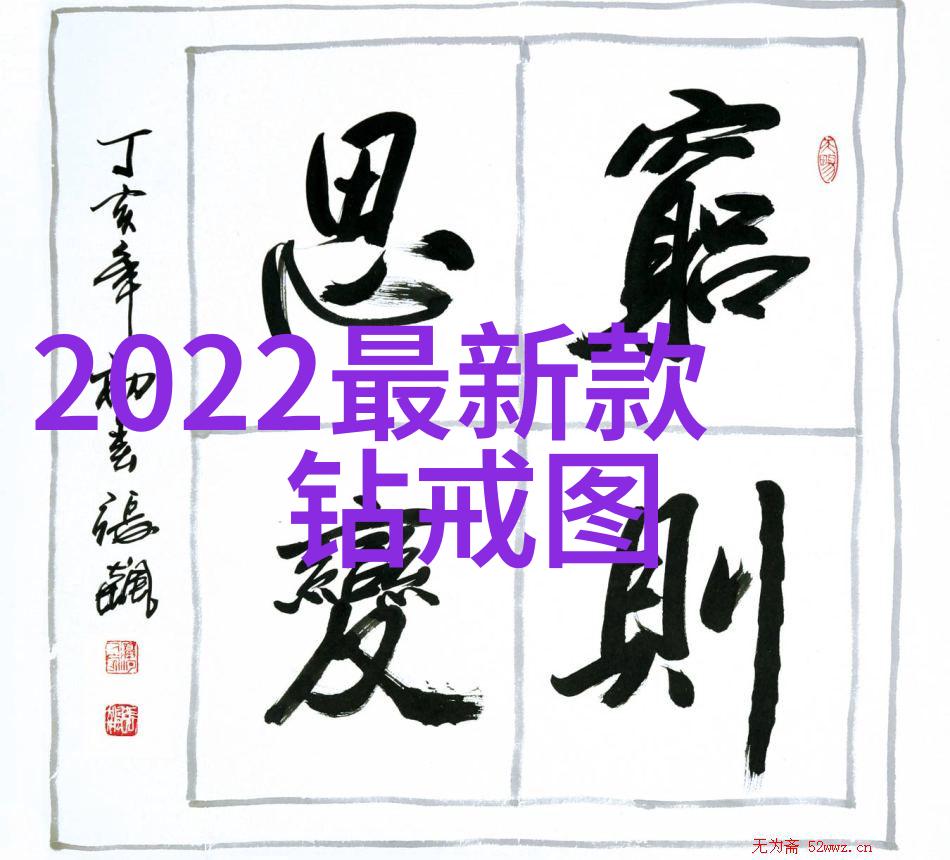 窮則
思變
丁亥年初春張飆
2022最新款
钻戒图
无为斋 52wwz.cn